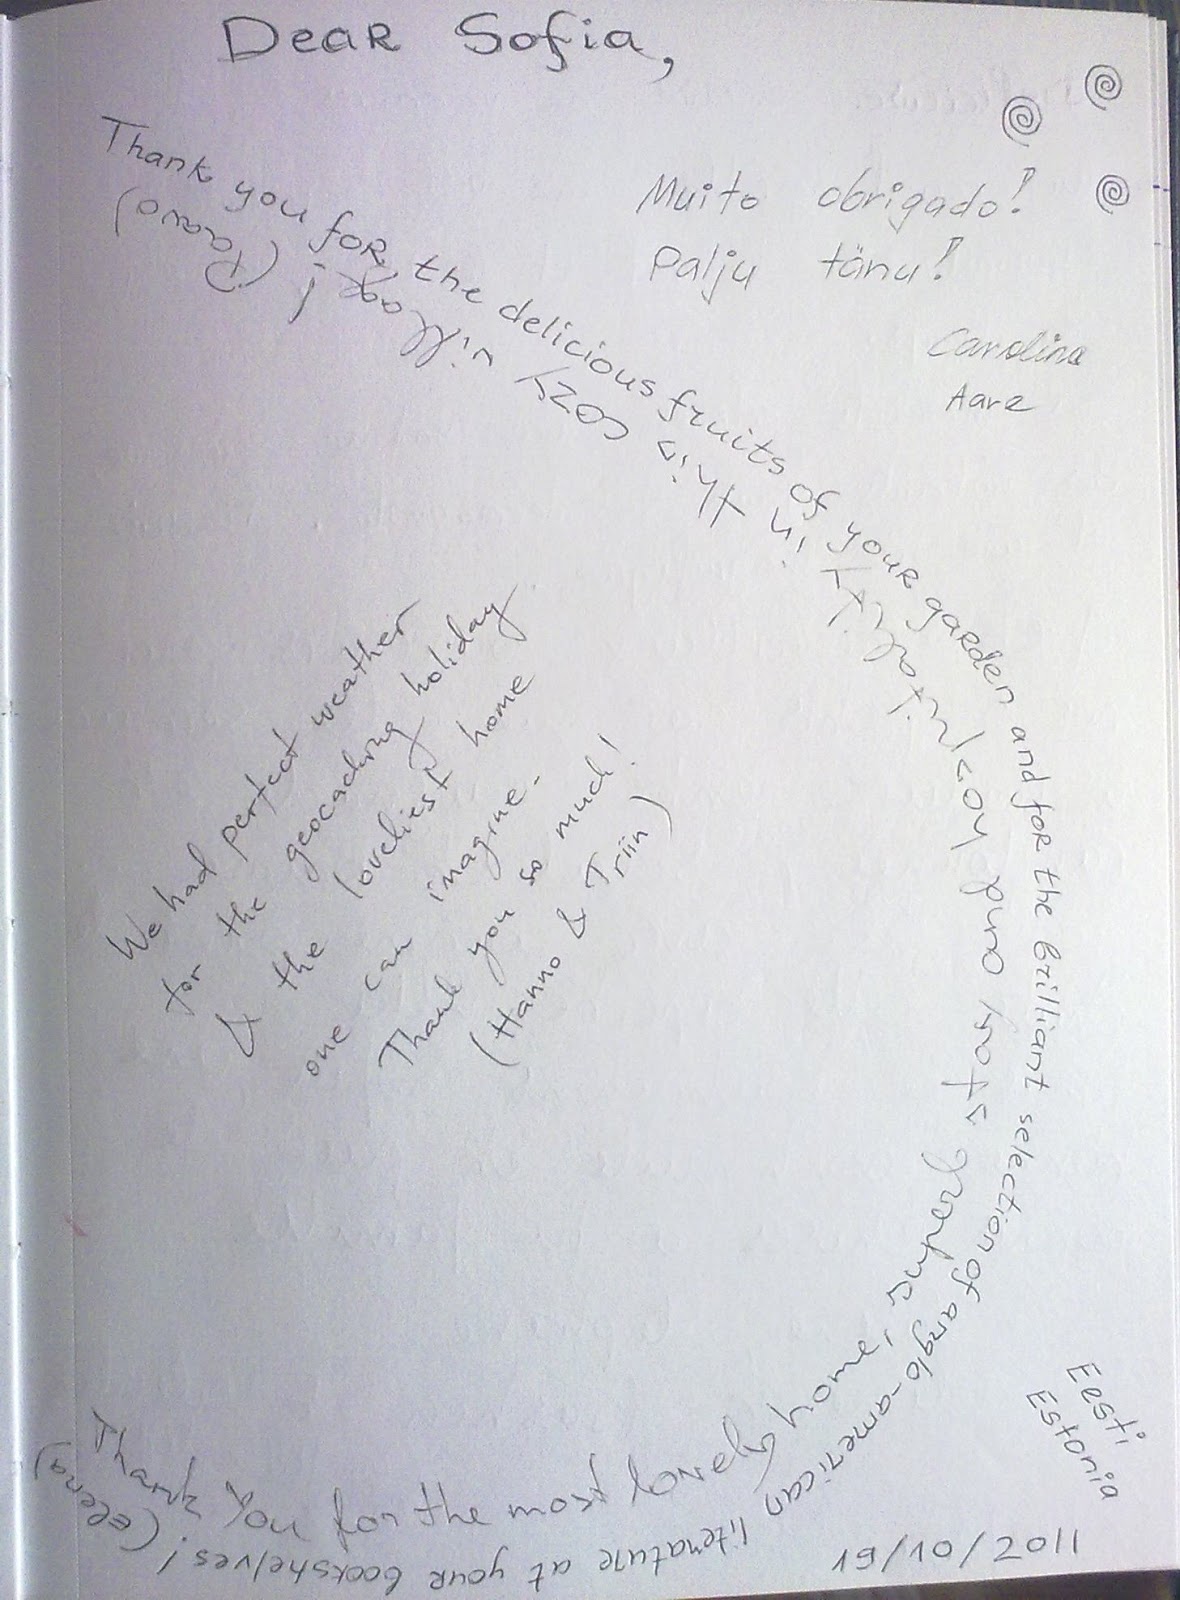 Dear Sofia,
Muito obrigado!
Palju tänu!
Carolina
Aare
Thank you for the delicious fruits of your garden and for the brilliant selection of anglo-american literature at your bookshelves!
We had perfect weather
for the geocaching holiday
& the loveliest home
one can imagine.
Thank you so much!
(Hanno & Triin)
Thank you for the most lovely home, superb stars and hospitality in this cozy village! (Paavo)
Eesti
Estonia
19/10/2011